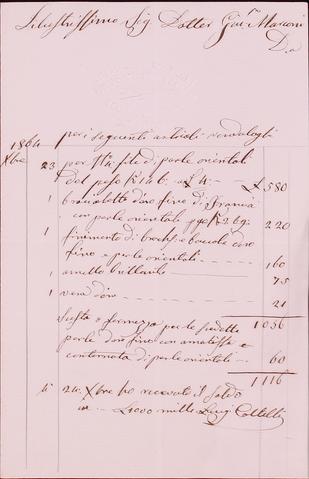 Illustrissimo Sig Dottor Gio. Marconi
Da
per i seguenti articoli vendutogli
1864
Xbre 23 per N 4 file di perle orientali
del peso K 146 a £ 4 £ 580
1 braccialetto d'oro fino di Francia
con perle orientali K 269 220
1 finimento di broch. e boccole d'oro
fino e perle orientali 160
1 anello brillante 75
1 vera d'oro 21
1056
Susta o fermezza per le sudette
perle d'oro fino con amatista e
contornata di perle orientali 60
1116
li 24 Xbre ho ricevuto il saldo
in £ 1000 mille Luigi